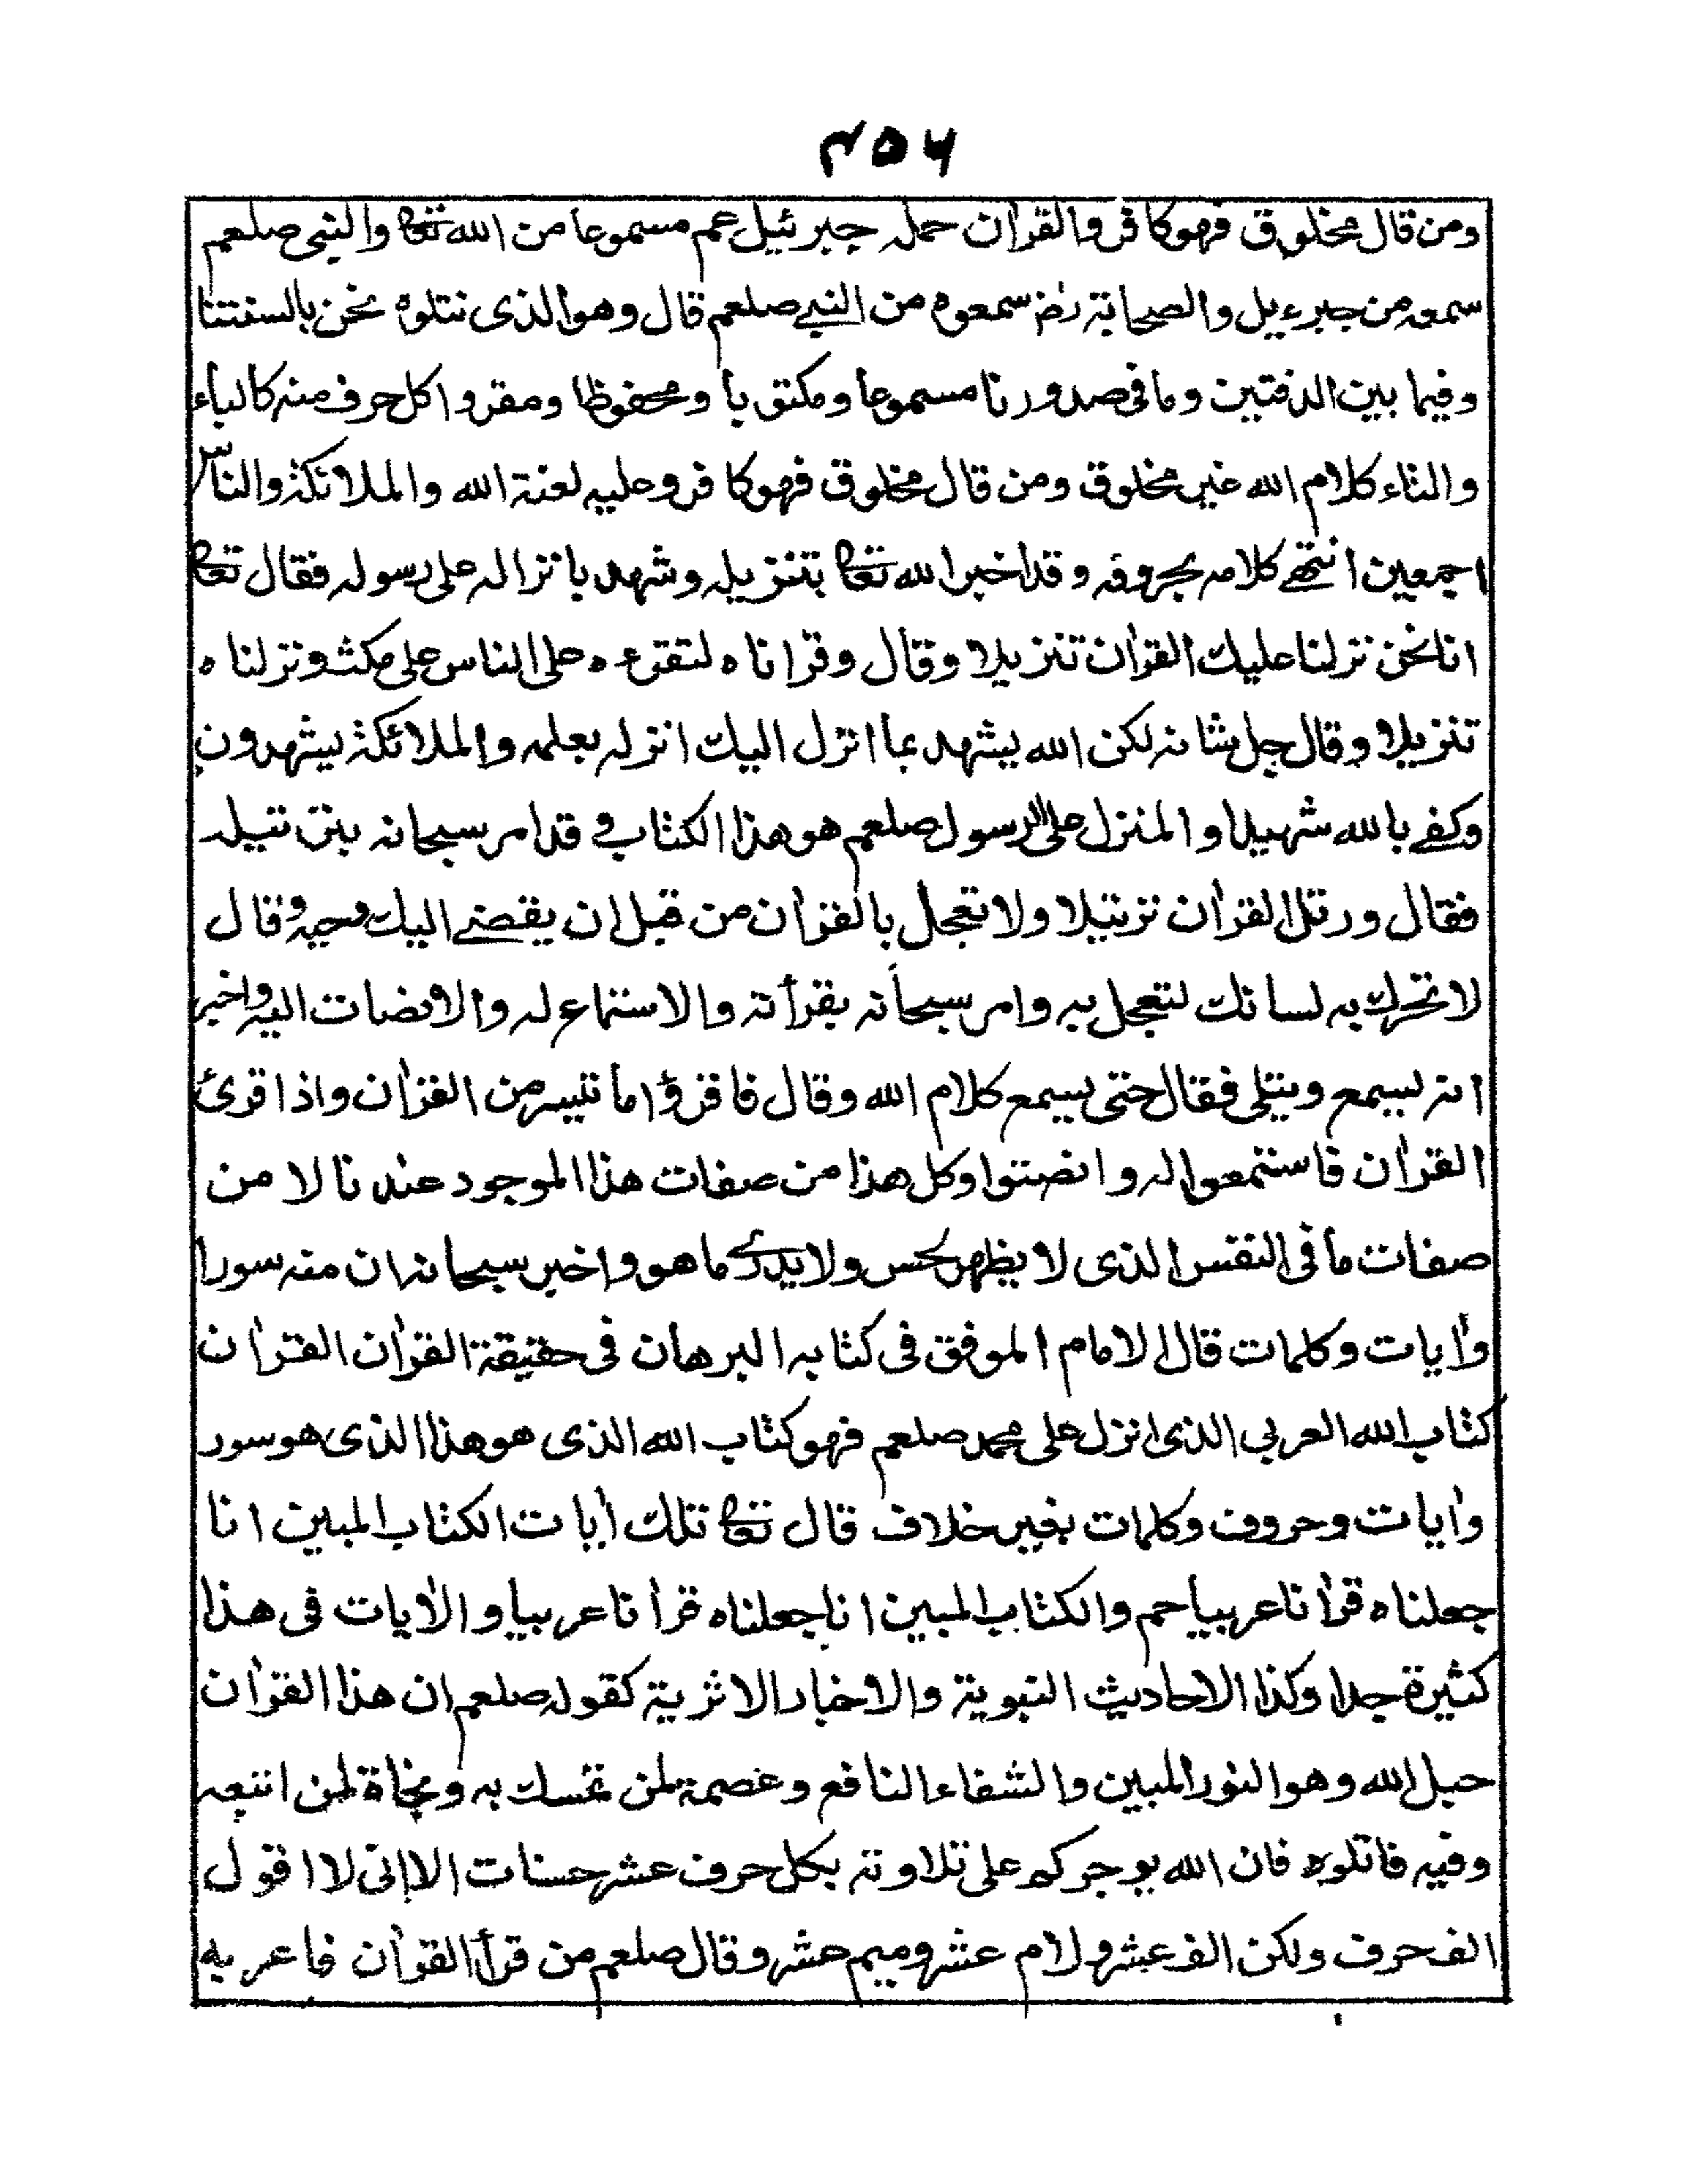 ۴۵۶
ومن قال مخلوق فهو كافر والقرأن حمله جبرئيل عم مسموعا من الله تعا والنبى صلعم
سمعه من جبرءيل والصحابة رض سمعوه من النبي صلعم قال وهو الذى نتلوه نحن بالسنتنا
وفيما بين الدفتين وما فى صدورنا مسموعا ومكتوبا ومحفوظا ومقروا كل حرف منه كالباء
والتاء كلام الله غير مخلوق ومن قال مخلوق فهو كافر وعليه لعنة الله والملائكة والناس
اجمعين انتهى كلامه بحروفه وقد اخبر الله تعا بتنزيله وشهد بانزاله على رسوله فقال تعا
انا نحن نزلنا عليك القرأن تنزيلا وقال وقرأناه لتقرءه على الناس على مكث ونزلناه
تنزيلا وقال جل شانه لكن الله يشهد بما انزل اليك انزله بعلمه والملائكة يشهدون
وكفى بالله شهيدا والمنزل على الرسول صلعم هو هذا الكتاب و قد امر سبحانه بترتيله
فقال ورتل القرأن ترتيلا ولا تعجل بالقرأن من قبل ان يقضى اليك وحيه وقال
لا تحرك به لسانك لتعجل به وامر سبحانه بقرأته والاستماع له والانصات اليه واخبر
انه يسمع ويتلى فقال حتى يسمع كلام الله وقال فاقرؤا ما تيسر من القرأن واذا قرئ
القرأن فاستمعوا له وانصتوا وكل هذا من صفات هذا الموجود عندنا لا من
صفات ما فى النفس الذى لا يظهر لحس ولا يدرى ما هو واخبر سبحانه ان منه سورا
وأيات وكلمات قال الامام الموفق فى كتابه البرهان فى حقيقة القرأن القرأن
كتاب الله العربي الذى انزل على محمد صلعم فهو كتاب الله الذى هو هذا الذى هو سور
وأيات وحروف وكلمات بغير خلاف قال تعا تلك أيات الكتاب المبين انا
جعلناه قرأنا عربيا حم والكتاب المبين انا جعلناه قرأنا عربيا والأيات فى هذا
كثيرة جدا وكذا الاحاديث النبوية والاخبار الاثرية كقوله صلعم ان هذا القرأن
حبل الله وهو النور المبين والشفاء النافع وعصمة لمن تمسك به ونجاة لمن اتبعه
وفيه فاتلوه فان الله يوجركم على تلاوته بكل حرف عشر حسنات الا انى لا اقول
الف حرف ولكن الف عشر ولام عشر وميم عشر وقال صلعم من قرأ القرأن فاعربه